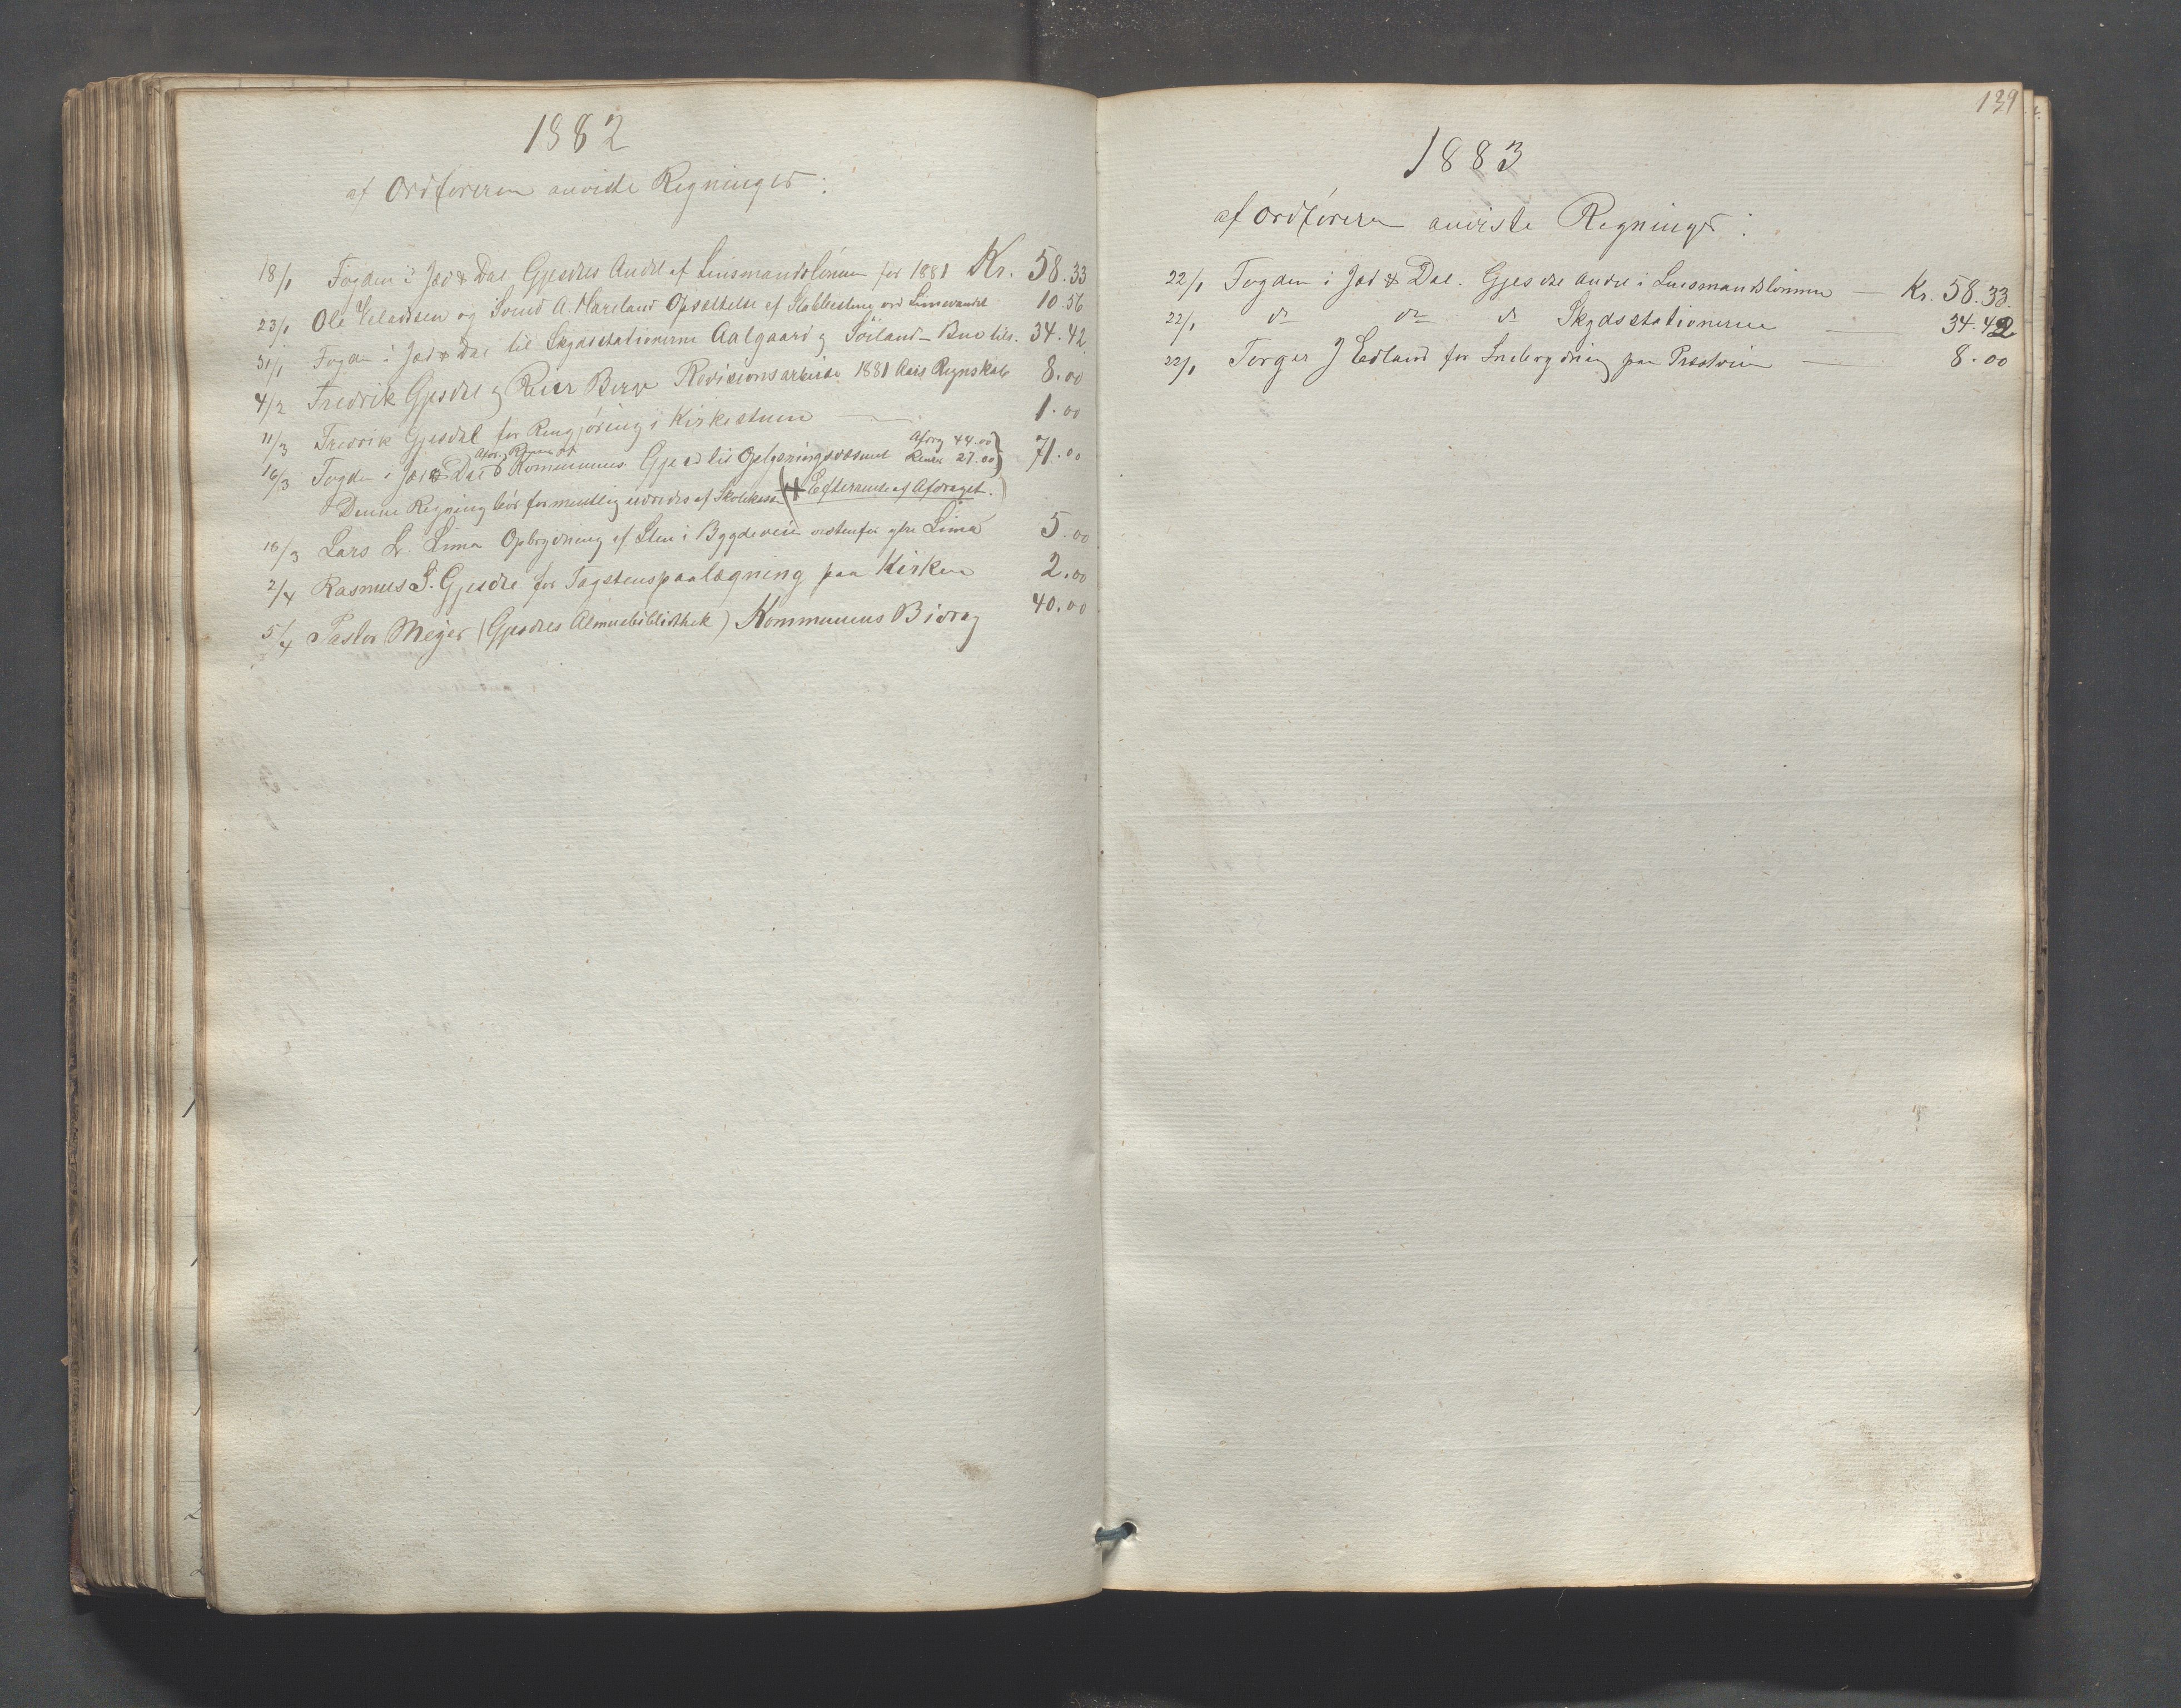 1882
af Ordføreren anviste Regninger:
18/1 Fogden i Jæd & Dal Gjesdals Andel af Lensmandslønnen for 1881 Kr. 58.33
23/1 Ole Veladsen og Svend A. Mareland Opsættelse af Stabbestene ved Limevandet 10.56
31/1 Fogden i Jæd & Dal til Skydsstationerne Aalgaard og Søiland - Bue tils. 34.42
4/2 Fredrik Gjesdal og Reier Berge Revisionsarbeide 1881 Aars Regnskab 8.00
11/3 Fredrik Gjesdal for Rengjøring i Kirkestuen 1.00
16/3 Fogden i Jæd & Dal Kommunens Gjæld til Oplysningsvæsenet Afdrag 44.00 Renter 27.00 71.00
Denne Regning bør formentlig udredes af Skolekassen (Eftersendt af Afdraget.)
18/3 Lars L. Lima Opbrydning af Sten i Bygdeveien vestenfor ytre Lima 5.00
2/4 Rasmus S. Gjesdal for Tagstenspaalægning paa Kirken 2.00
5/4 Pastor Meyer (Gjesdals Almuebibliothek) Kommunens Bidrag 40.00
139
1883
af Ordføreren anviste Regninger:
22/1 Fogden i Jæd & Dal. Gjesdals Andel i Lensmandslønnen — Kr. 58.33.
22/1 do do do Skydsstationerne — 34.42
22/1 Torger J Edland for Snebrydning paa Præstveien — 8.00